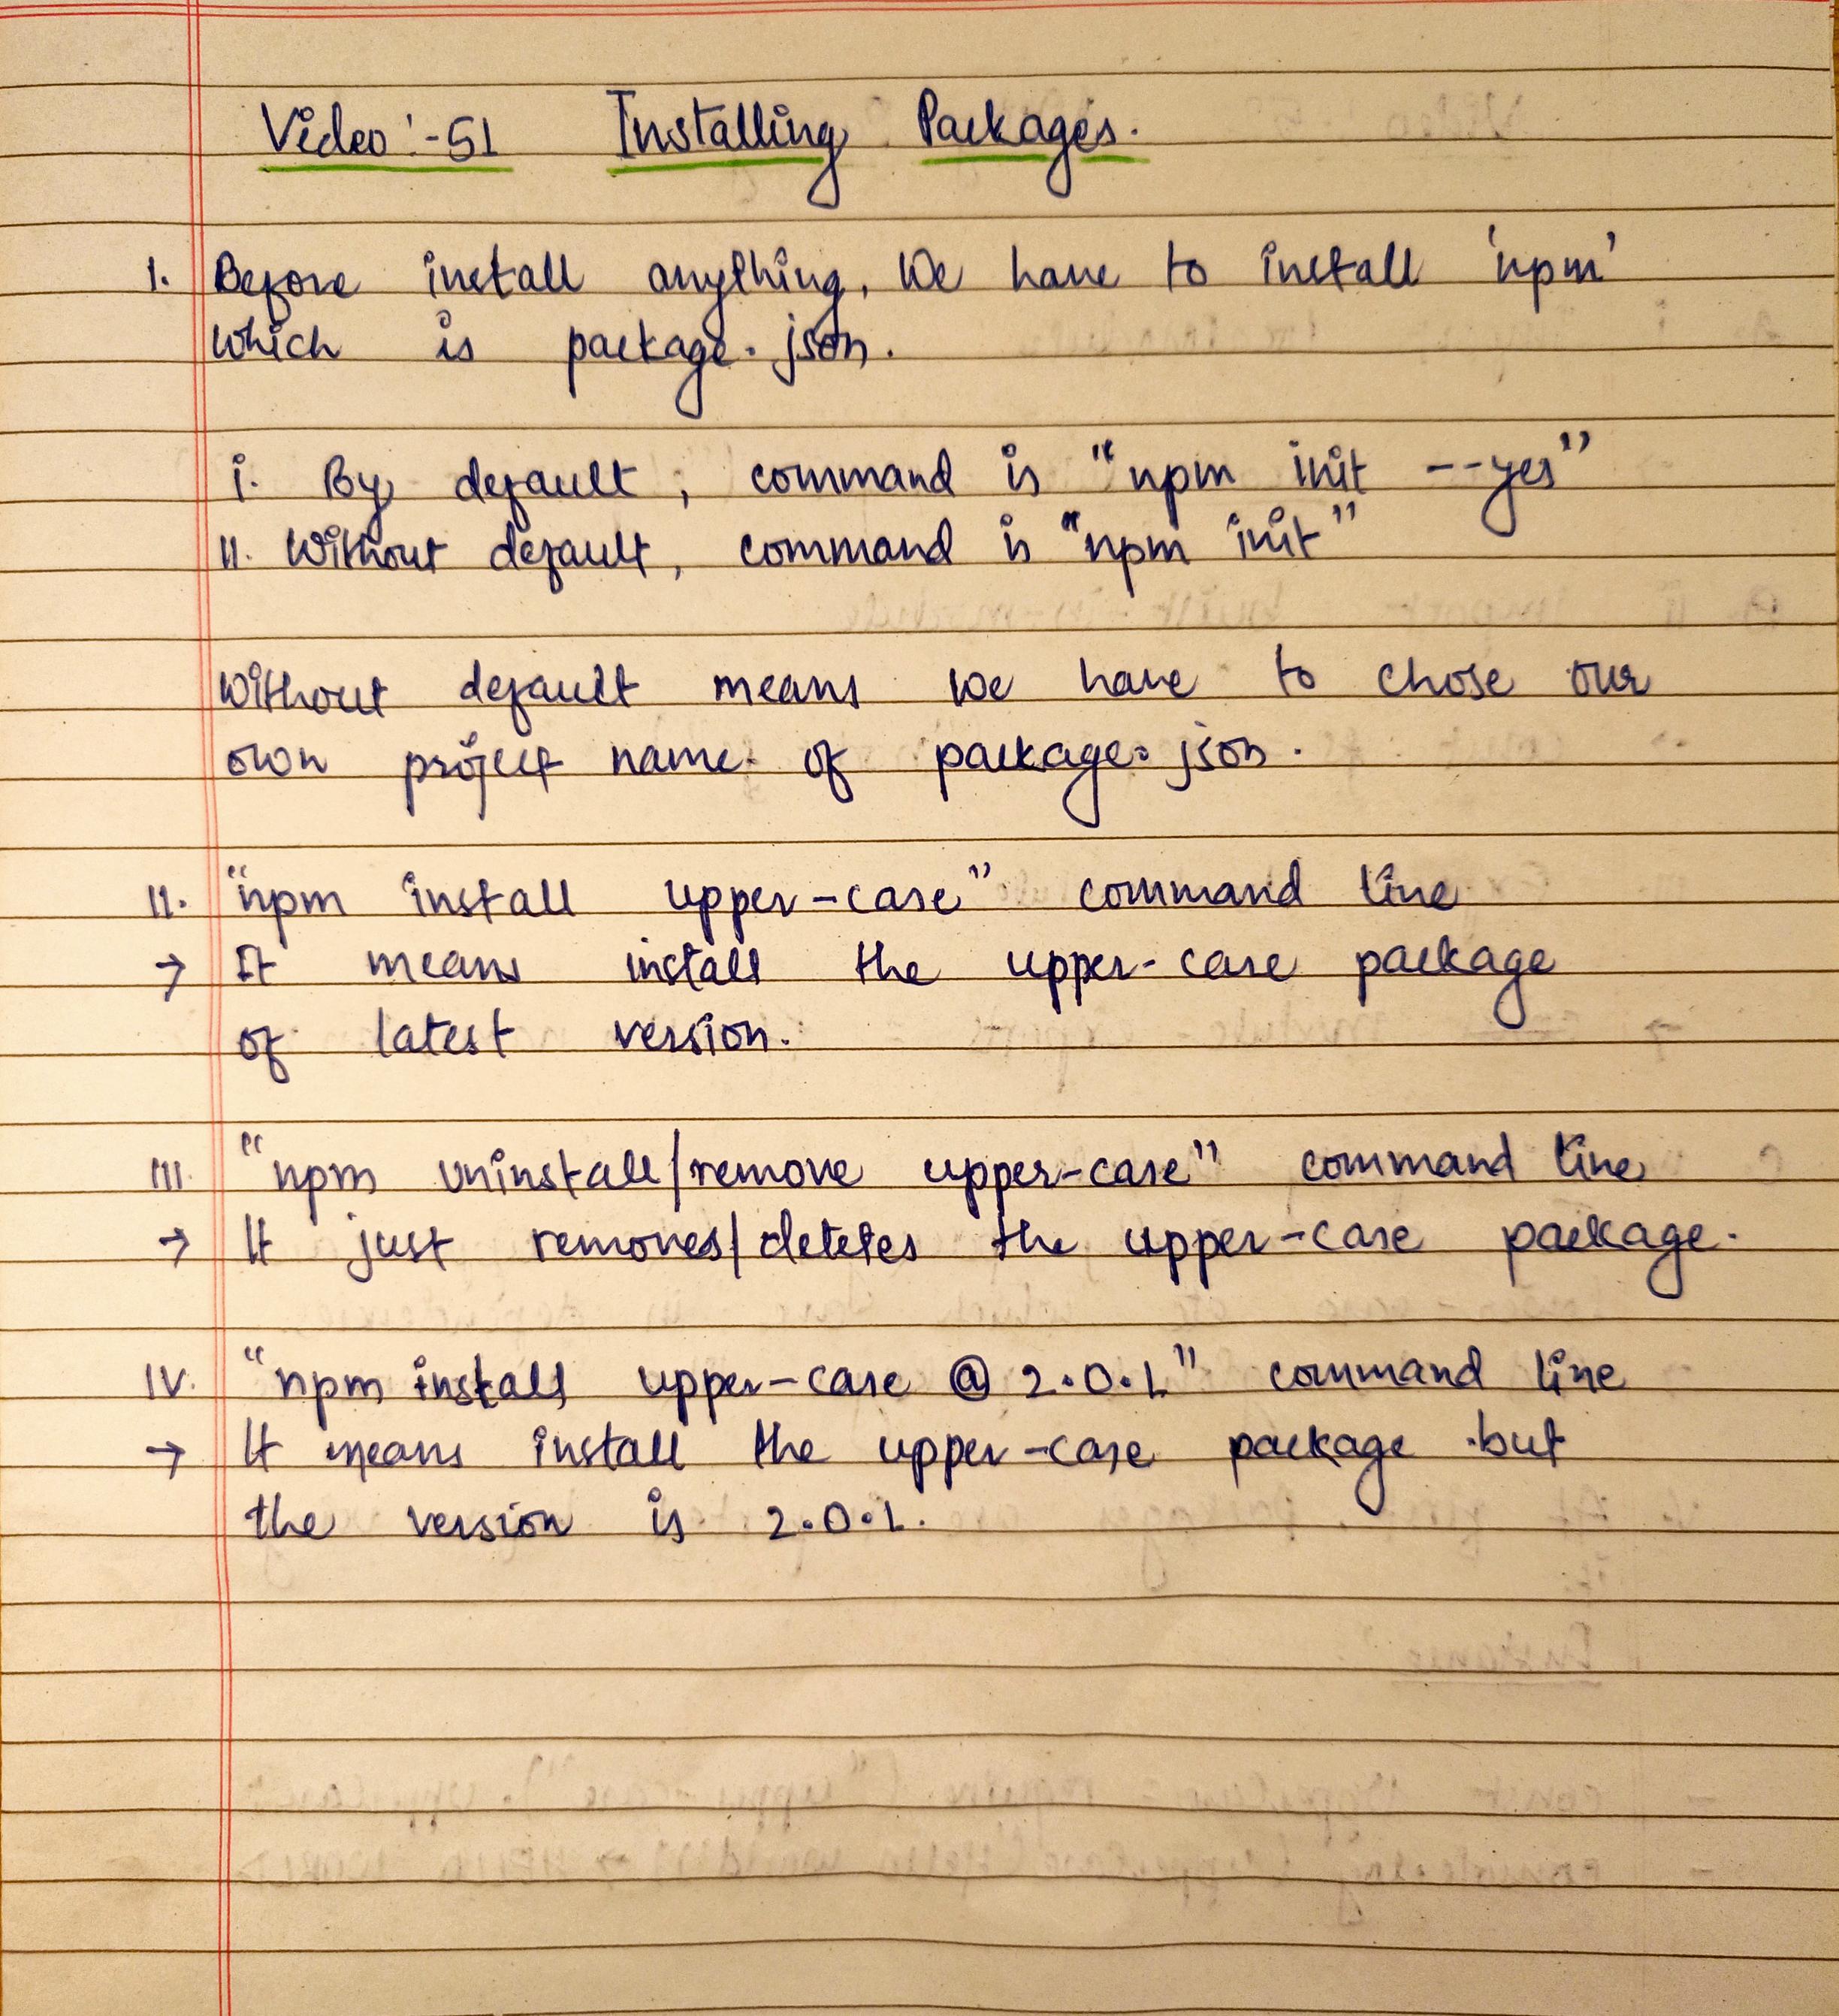 Video :- 51 Installing Packages.
I. Before install anything, We have to install 'npm'
which is package.json.
i. By default, command is "npm init --yes"
II. Without default, command is "npm init"
Without default means we have to chose our
own project name of package.json.
II. "npm install upper-case" command line
→ It means install the upper-case package
of latest version.
III. "npm uninstall/remove upper-case" command line
→ It just removes/deletes the upper-case package.
IV. "npm install upper-case @ 2.0.1" command line
→ It means install the upper-case package but
the version is 2.0.1.